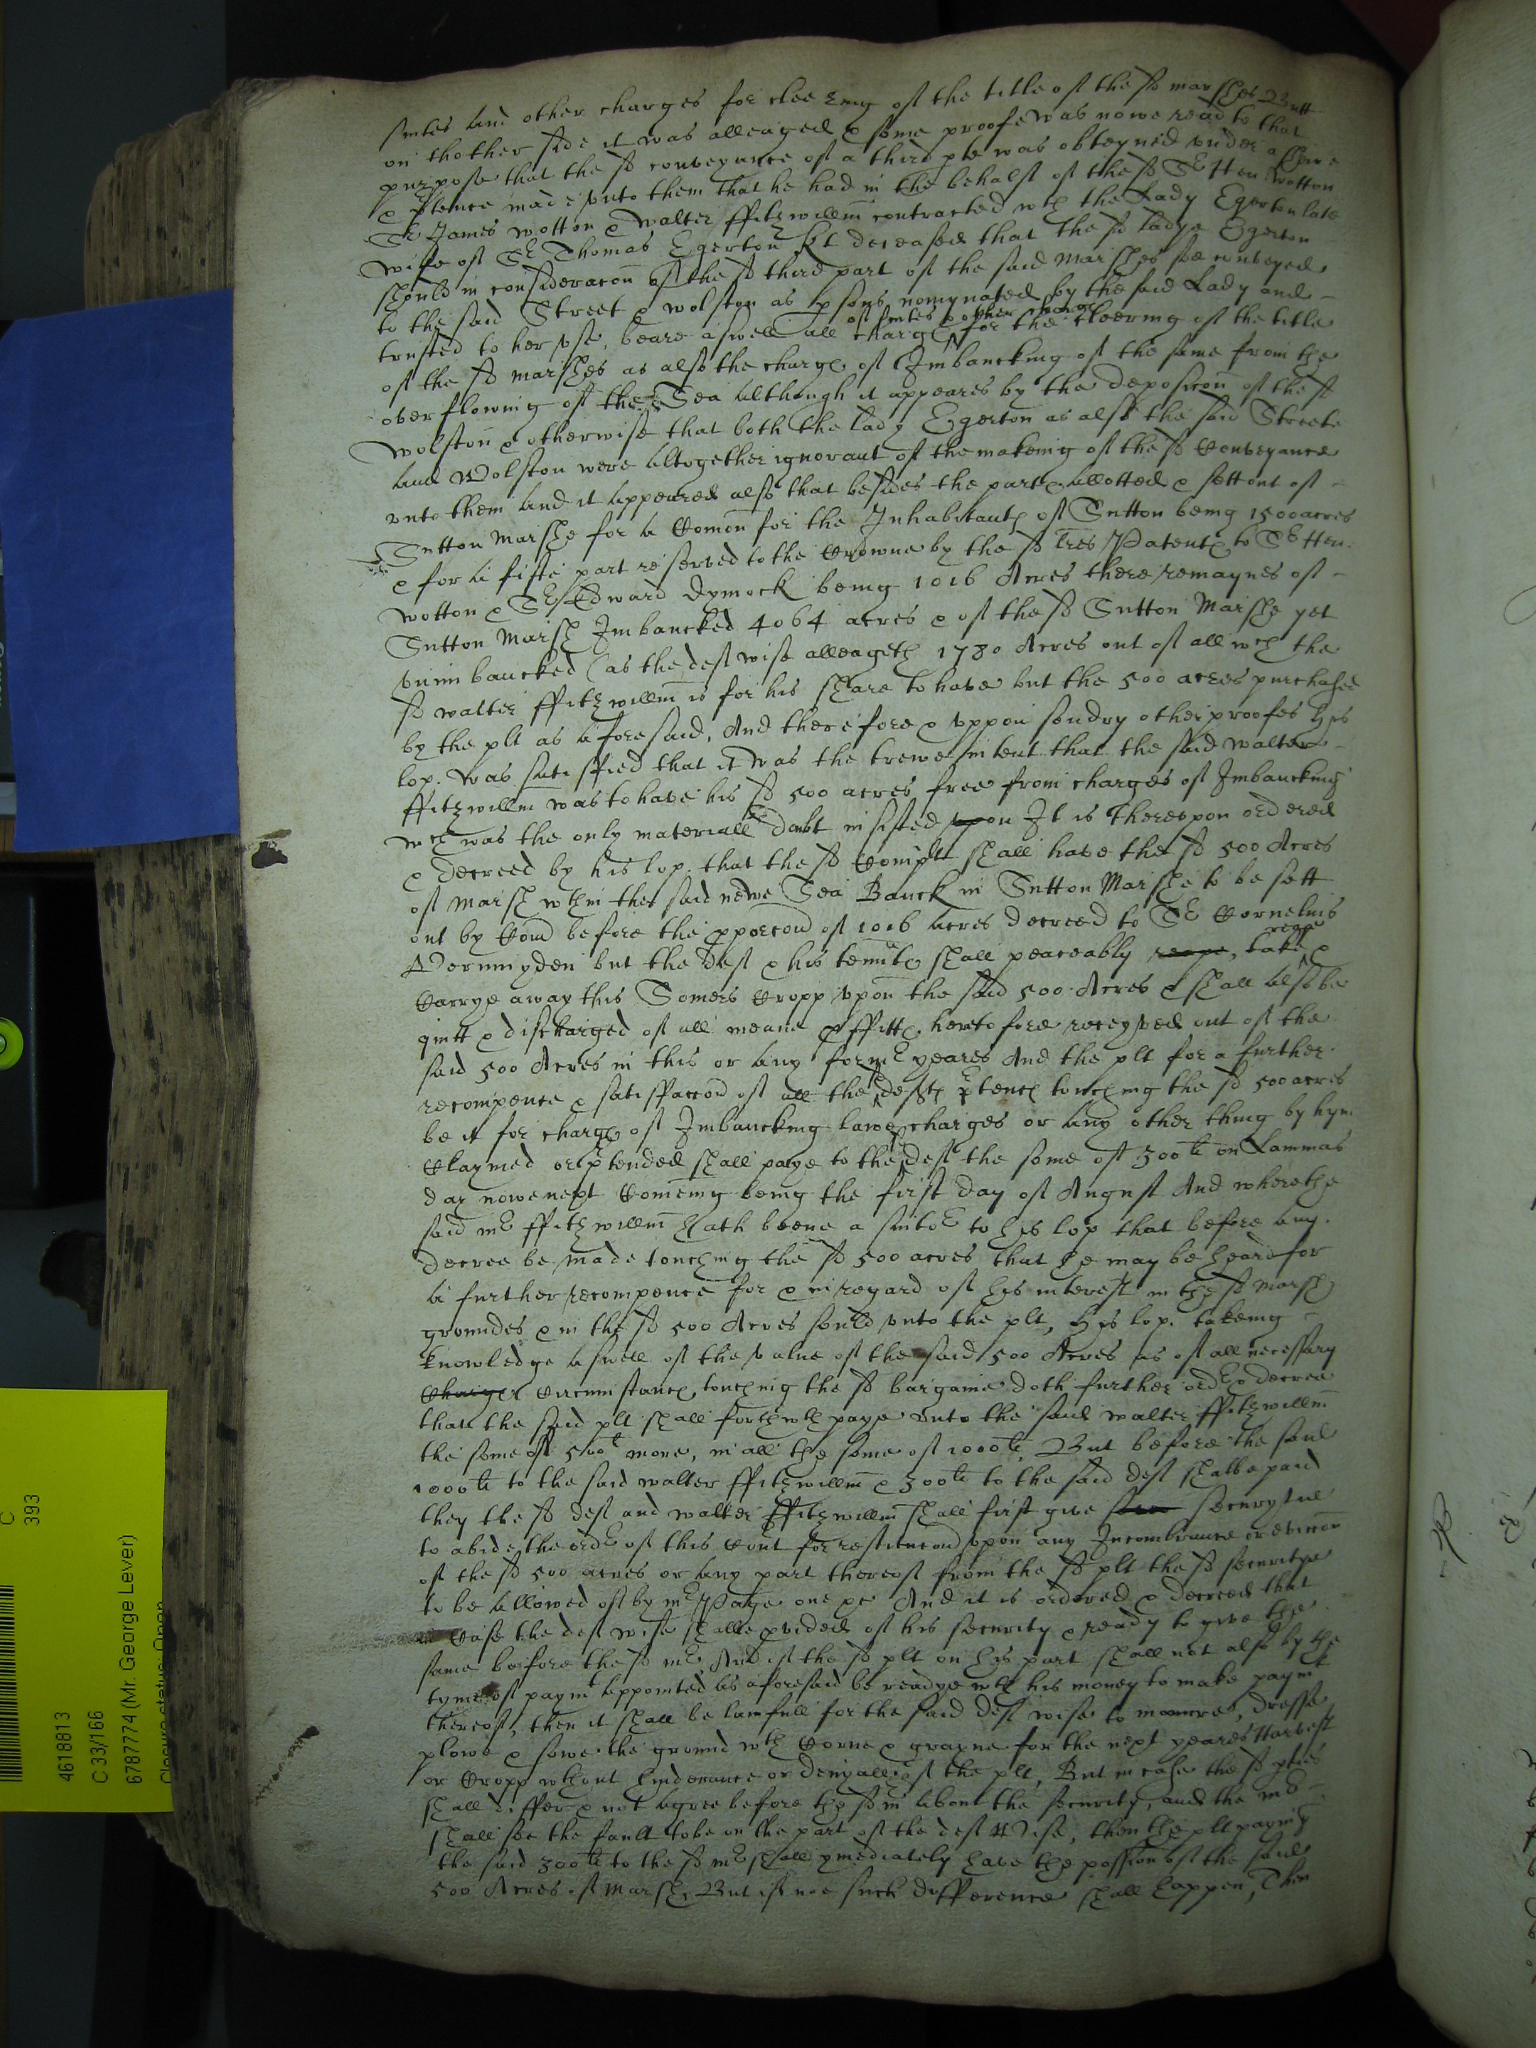 suites and other charges for cleering of the title of the sd marshes But
on thother side it was alleaged & some proofe was nowe read to that
purpose that the sd conveyance of a third pte was obteyned under a
& ptence made unto them that he had in the behalf of the sd Sr Hen: Wotton
Sr James Wotton & Walter ffitzwillm contracted wth the Lady Egerton late
wife of Sr Thomas Egerton kt deceased that the sd Ladye Egerton
should in consideracon of the sd third part of the said Marshes soe conveyed
to the said Street & Wolston as psons nomynated by the said Lady and
of suites & other charge
trusted to her use, beare aswell all charge for the cleering of the title
of the sd marshes as also the charge of Imbancking of the same from the
overflowing of the Sea Although it appeares by the deposicon of the sd
Wolston & otherwise that both the lady Egerton as also the said Streete
and Wolston were altogether ignorant of the makeing of the sd Conveyance
unto them And it appeared also that besides the parte allotted & sett out of
Sutton Marshe for a Comon for the Inhabitante of Sutton being 1500 acres
& for a fifte part reserved to the Crowne by the sd lres Patente to Sr Hen:
Wotton & Sr Edward Dymock being 1016 Acres there remaynes of
Sutton Marsh Imbancked 4064 acres & of the sd Sutton Marshe yet
unimbancked (as the deft Wise alleageth 1780 Acres out of all wch the
sd Walter ffitzwillm is for his share to have but the 500 acres purchased
by the plt as aforesaid, And therefore & uppon sondry other proofes his
lop. was satisfied that it was the trewe intent that the said Walter
ffitzwillm was to have his sd 500 acres free from charges of Imbancking
wch was the only materiall doubt insisted upon It is thereupon ordered
& decreed by his lop. that the sd Complt shall have the sd 500 Acres
of Marsh wthin the said newe Sea Banck in Sutton Marshe to be sett
out by Comd before the pporcon of 1016 acres decreed to Sr Cornelius
reape
Vermuyden but the deft & his tennte shall peaceably reape, take &
Carrye away this Somers Cropp upon the said 500 Acres & shall also be
quitt & discharged of all meane pffitte heretofore receyved out of the
said 500 Acres in this or any former yeares And the plt for a further
recompence & satisfaccon of all the sd defte ptence touching the sd 500 acres
be it for charge of Imbancking lawe charges or any other thing by hym
Claymed or ptended shall paye to the sd deft the some of 300li on Lammas
day nowe next Comeing being the first day of August And where the
said mr ffitzwillm hath beene a suitor to his lop that before any
decree be made touching the sd 500 acres that he may be heard for
a further recompence for & in regard of his interest in the sd Marsh
groundes & in the sd 500 Acres sould unto the plt, His lop. takeing
knowledge aswell of the value of the said 500 Acres as of all necessary
Charges Circumstance touching the sd bargaine doth further order & decree
that the said plt shall forthwth paye unto the said Walter ffitzwillm
the some of 500li more, in all the some of 1000li, But before the said
1000li to the said Walter ffitzwillm & 300li to the said deft shalbe paid
they the sd deft and Walter ffitzwillm shall first give securytie
to abide the order of this Court for restitucon upon any Incombrance or eviccon
of the sd 500 acres or any part thereof from the sd plt the sd securitye
to be allowed of by mr Page one &c And it is ordered & decreed that
in Case the deft Wise shalbe pvided of his security & ready to give the
same before the sd mr And if the sd plt on his part shall not also by the
tyme of paymt appointed as aforesaid be readye wth his money to make paymt
thereof, then it shall be lawfull for the said deft Wise to manure, dresse
plowe & sowe the ground wth Corne & grayne for the next yeares Harvest
or Cropp wthout hinderance or denyall of the plt, But in case the sd pties
shall differ & not agree before the sd mr about the security, and the mr
shall see the fault to be on the part of the deft Wise, then the plt paying
the said 300li to the sd mr shall ymediately have the possion of the said
500 Acres of Marsh, But if noe such difference shall happen, Then
C
393
4618813
C 33/166
6787774 (Mr. George Lever)
Closure status: Open